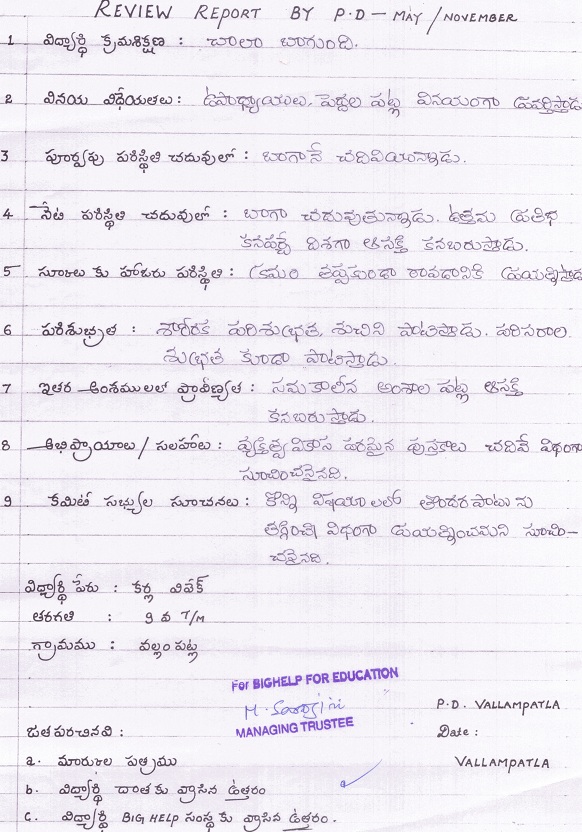 REVIEW REPORT BY P.D - MAY / NOVEMBER
1 విద్యార్థి క్రమశిక్షణ : చాలా బాగుంది.
2 వినయ విధేయతలు: ఉపాధ్యాయులు, పెద్దల పట్ల వినయంగా ప్రవర్తిస్తాడు
3 పూర్వపు పరిస్థితి చదువులో : బాగానే చదివియున్నాడు.
4 నేటి పరిస్థితి చదువులో : బాగా చదువుతున్నాడు. ఉత్తమ ప్రతిభ
కనపర్చే దిశగా ఆసక్తి కనబరుస్తాడు.
5 స్కూలు కు హాజరు పరిస్థితి : క్రమం తప్పకుండా రావడానికి ప్రయత్నిస్తాడు
6 పరిశుభ్రత : శారీరక పరిశుభ్రత, శుచిని పాటిస్తాడు. పరిసరాల
శుభ్రత కూడా పాటిస్తాడు.
7 ఇతర అంశములలో ప్రావీణ్యత : సమకాలీన అంశాల పట్ల ఆసక్తి
కనబరుస్తాడు.
8 అభిప్రాయాలు / సలహాలు : వ్యక్తిత్వ వికాస పరమైన పుస్తకాలు చదివే విధంగా
సూచించనైనది.
9 కమిటీ సభ్యుల సూచనలు : కొన్ని విషయాలలో తొందరపాటు ను
తగ్గించే విధంగా ప్రయత్నించమని సూచిం-
చనైనది.
విద్యార్థి పేరు : కర్ణ వివేక్
తరగతి : 9 వ T/M
గ్రామము : వల్లంపట్ల
For BIGHELP FOR EDUCATION
M. Sarojini
MANAGING TRUSTEE
P.D. VALLAMPATLA
జతపరచినవి :
Date :
a. మార్కుల పత్రము
VALLAMPATLA
b. విద్యార్థి దాత కు వ్రాసిన ఉత్తరం
c. విద్యార్థి BIG HELP సంస్థ కు వ్రాసిన ఉత్తరం.